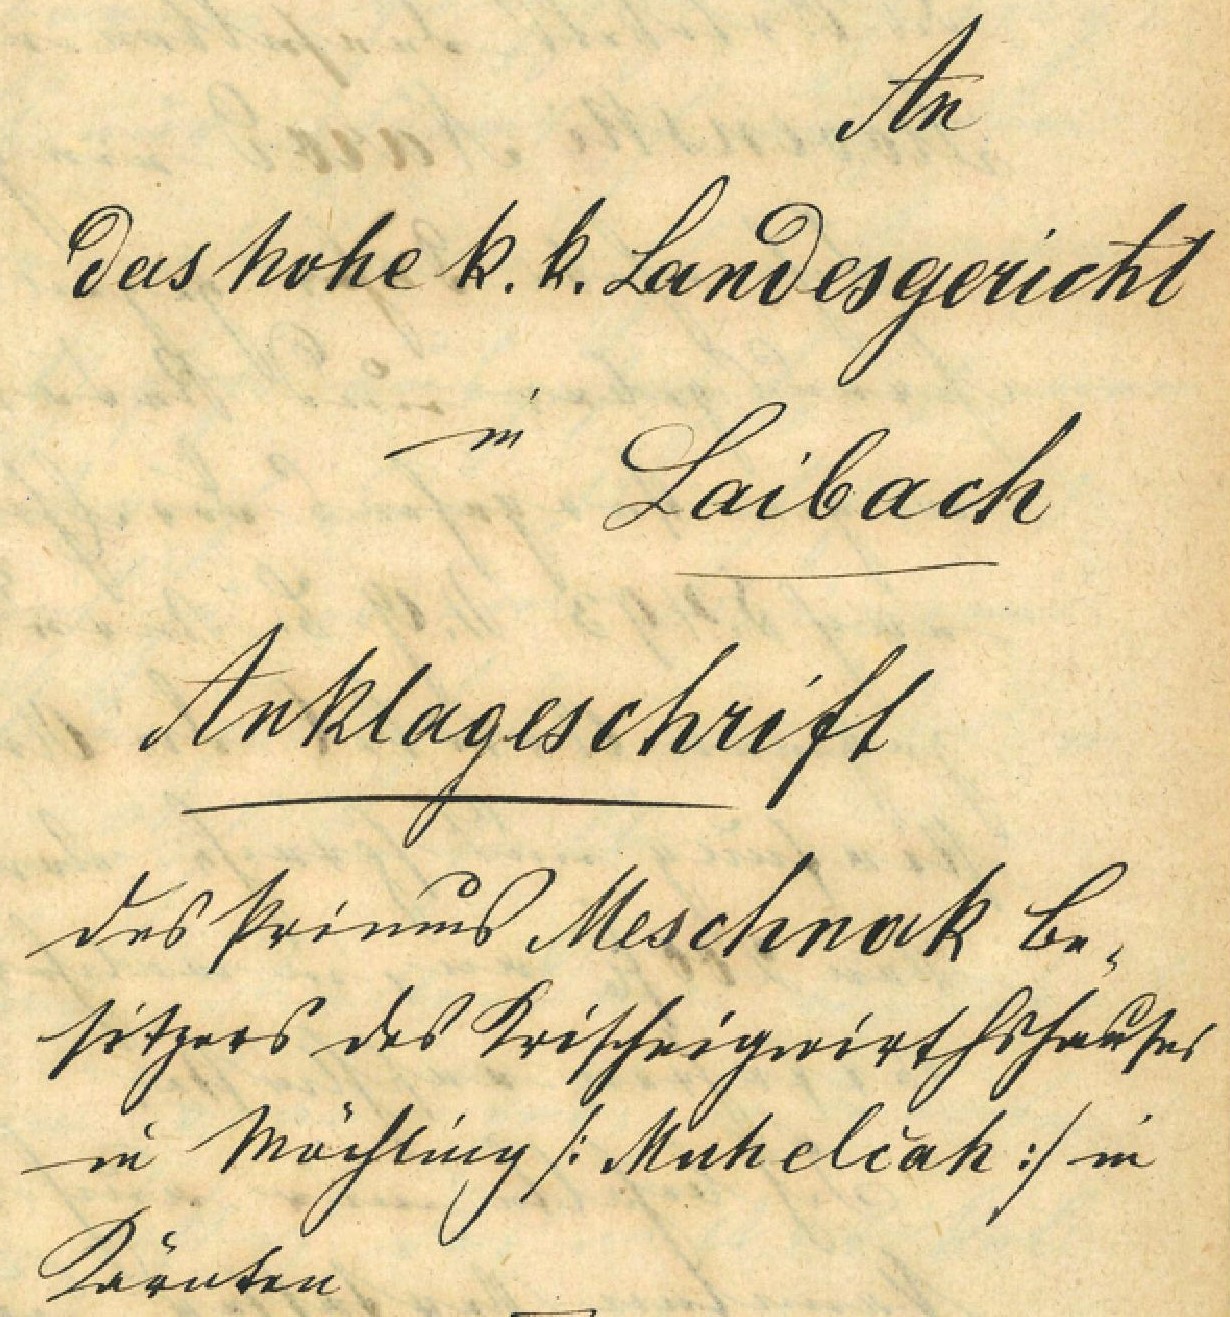 An
das hohe k. k. Landesgericht
in Laibach
Anklageschrift
des Primus Meschnak Be-
sitzers des Krischeigwirthshauses
in Möchling /: Muhelčah :/ in
Kärnten